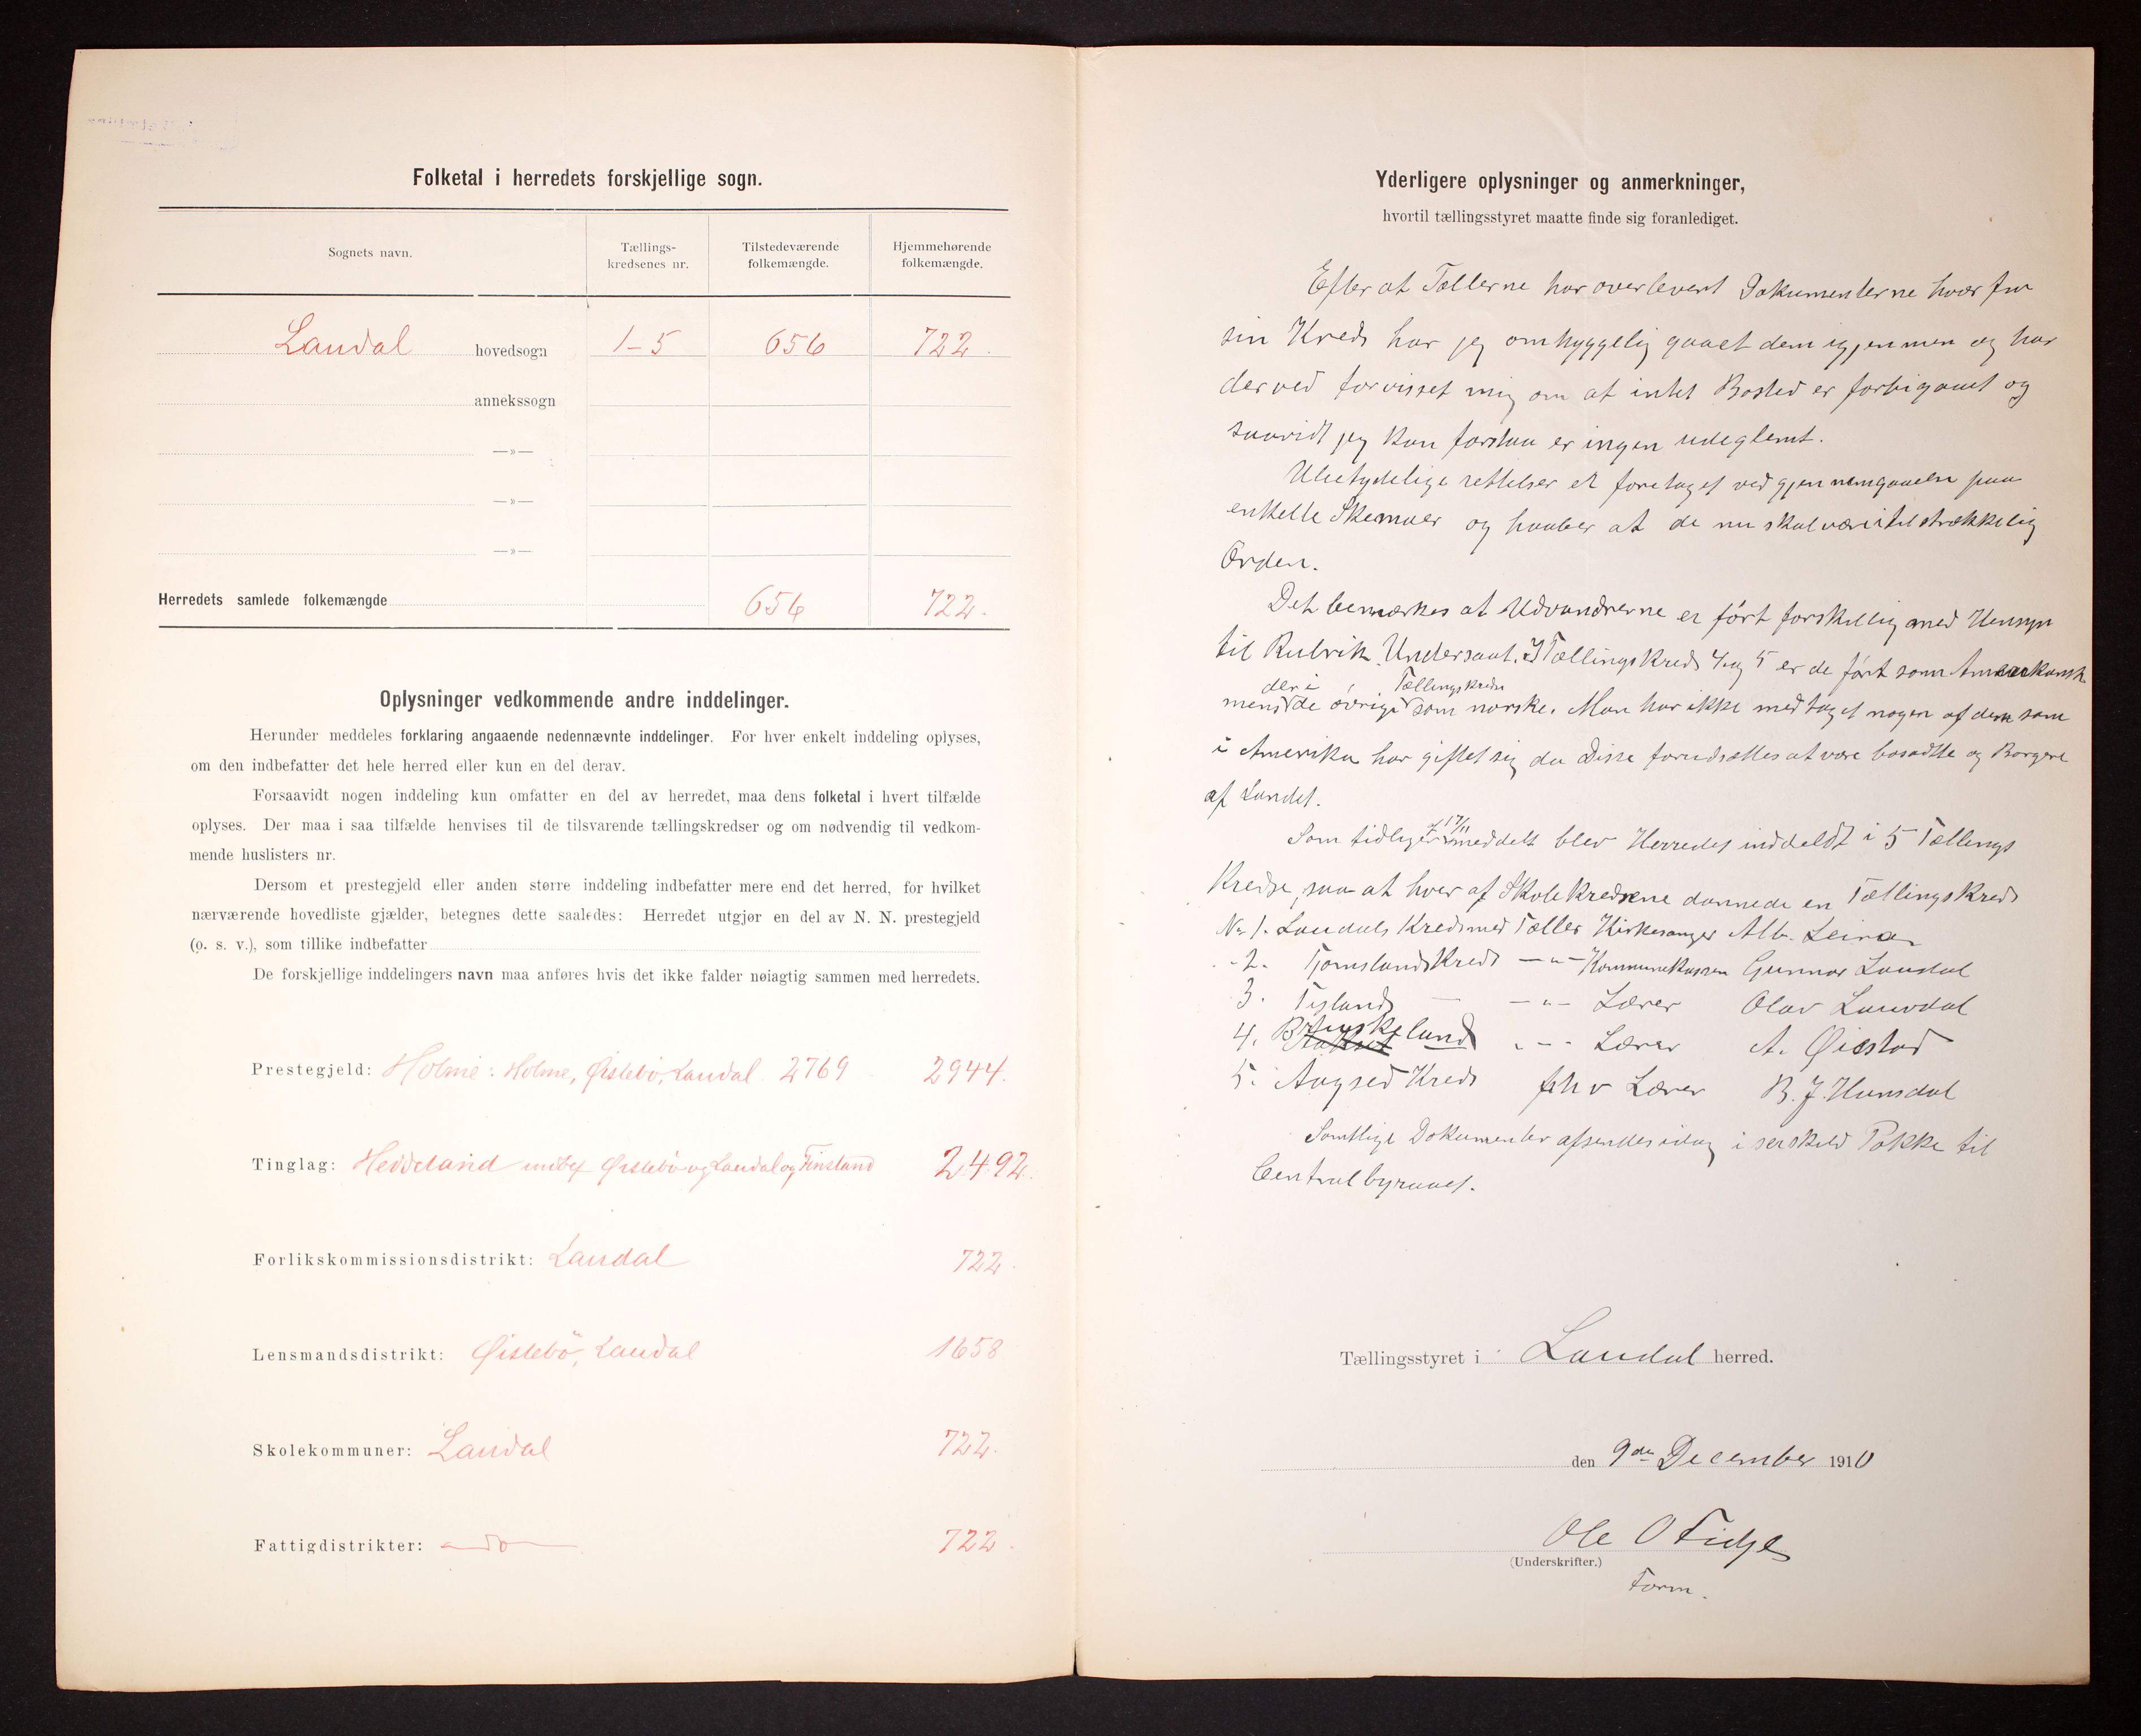 Folketal i herredets forskjellige sogn.
Sognets navn.
Tællings-
kredsenes nr.
Tilstedeværende
folkemængde.
Hjemmehørende
folkemængde.
Laudal hovedsogn 1-5 656 722.
annekssogn
—»—
—»—
—»—
Herredets samlede folkemængde 656 722.
Oplysninger vedkommende andre inddelinger.
Herunder meddeles forklaring angaaende nedennævnte inddelinger. For hver enkelt inddeling oplyses,
om den indbefatter det hele herred eller kun en del derav.
Forsaavidt nogen inddeling kun omfatter en del av herredet, maa dens folketal i hvert tilfælde
oplyses. Der maa i saa tilfælde henvises til de tilsvarende tællingskredser og om nødvendig til vedkom-
mende huslisters nr.
Dersom et prestegjeld eller anden større inddeling indbefatter mere end det herred, for hvilket
nærværende hovedliste gjælder, betegnes dette saaledes: Herredet utgjør en del av N. N. prestegjeld
(o. s. v.), som tillike indbefatter
De forskjellige inddelingers navn maa anføres hvis det ikke falder nøiagtig sammen med herredets.
Prestegjeld: Holme: Holme, Øislebö, Laudal 2769 2944.
Tinglag: Heddeland indbef Øislebö og Laudal og Finsland 2492.
Forlikskommissionsdistrikt: Laudal 722.
Lensmandsdistrikt: Øislebö, Laudal 1658
Skolekommuner: Laudal 722.
Fattigdistrikter: —do— 722.
Yderligere oplysninger og anmerkninger,
hvortil tællingsstyret maatte finde sig foranlediget.
Efter at Tællerne har overlevert Dokumenterne hver for
sin Kreds har jeg omhyggelig gaaet dem igjennem og har
derved forvisset mig om at intet Bosted er forbigaaet og
saavidt jeg kan forstaa er ingen udeglemt.
Ubetydelige rettelser er foretaget ved gjennemgaaelse paa
enkelte Skemaer og haaber at de nu skal være i tilstrækkelig
Orden.
Det bemærkes at Udvandrerne er ført forskellig med Hensyn
til Rubrik Undersaat. I Tællingskreds 4 og 5 er de ført som Amerikansk
mens der i de øvrige Tællingskredse som norske. Man har ikke medtaget nogen af dem som
i Amerika har giftet sig da Disse forudsættes at være bosadtte og Borgere
af Landet.
Som tidligere af 17/11 meddelt blev Herredet inddeldt i 5 Tællings
Kredse, saa at hver af Skolekredsene dannede en Tællingskreds
No 1. Laudals Kreds med Tæller Kirkesanger Alb. Leira
-2. Tjomslands Kreds —"— Kommunekasserer Gunnar Laudal
3. —"— Lærer Olav Lauvdal
4. —"— Lærer A. Øiestad
5. Aagsed Kreds fhv Lærer B. J. Hunsdal
Samtlige Dokumenter afsendes idag i særskild Pakke til
Centralbyraaet.
Tællingsstyret i Laudal herred.
den 9de December 1910
Ole O
(Underskrifter.)
Form.